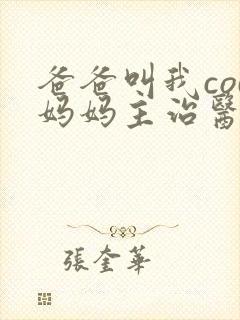 爸爸叫我co
妈妈主治醫
張奎華